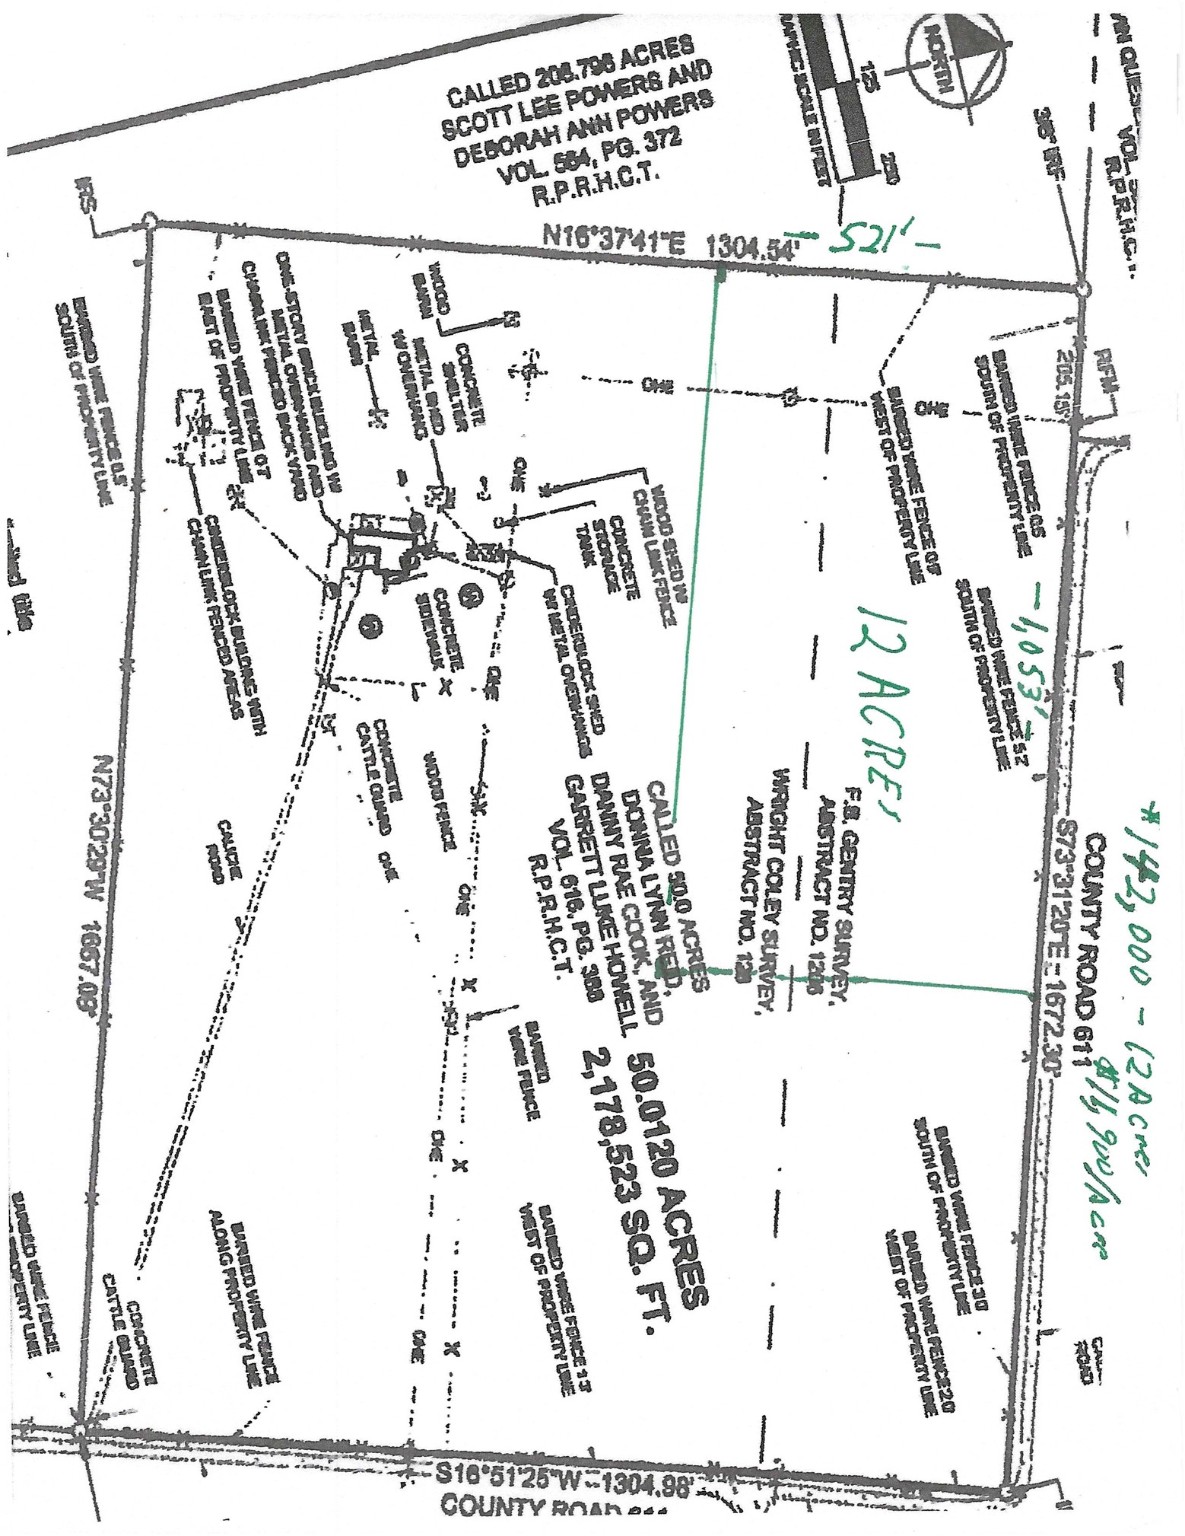 NORTH
125
250
GRAPHIC SCALE IN FEET
3/8" IRF
R.P.R.H.C.T.
CALLED 206.796 ACRES
SCOTT LEE POWERS AND
DEBORAH ANN POWERS
VOL. 564, PG. 372
R.P.R.H.C.T.
IRS
N16°37'41"E 1304.54'
- 521' -
RPM
205.15'
BARBED WIRE FENCE 0.5
SOUTH OF PROPERTY LINE
BARBED WIRE FENCE 0.5
SOUTH OF PROPERTY LINE
BARBED WIRE FENCE 0.7
EAST OF PROPERTY LINE
ONE-STORY BRICK BUILDING W/
METAL OVERHANGS AND
CHAINLINK FENCED BACKYARD
WOOD
BARN
METAL
BARN
METAL SHED
W/ OVERHANG
CONCRETE
SHELTER
OHE
OHE
OHE
WOOD SHED W/
CHAIN LINK FENCE
CONCRETE
STORAGE
TANK
BARBED WIRE FENCE 0.9'
WEST OF PROPERTY LINE
BARBED WIRE FENCE 5.2
SOUTH OF PROPERTY LINE
- 1,053' -
12 ACRES
CINDERBLOCK BUILDING WITH
CHAIN LINK FENCED AREAS
CINDERBLOCK SHED
W/ METAL OVERHANGS
CONCRETE
SIDEWALK
OHE
CONCRETE
CATTLE GUARD
WOOD FENCE
OHE
OHE
CALICHE
ROAD
N73°30'29"W 1667.09'
CALLED 50.0 ACRES
DONNA LYNN REID,
DANNY RAE COOK, AND
GARRETT LUKE HOWELL
VOL. 616, PG. 388
R.P.R.H.C.T.
F.B. GENTRY SURVEY,
ABSTRACT NO. 1266
WRIGHT COLEY SURVEY,
ABSTRACT NO. 128
S73°31'20"E - 1672.30'
COUNTY ROAD 611
$142,000 - 12 Acres
$11,900/Acre
50.0120 ACRES
2,178,523 SQ. FT.
BARBED
WIRE FENCE
OHE
OHE
BARBED WIRE FENCE 1.3'
WEST OF PROPERTY LINE
BARBED WIRE FENCE 3.0
SOUTH OF PROPERTY LINE
BARBED WIRE FENCE 2.0
WEST OF PROPERTY LINE
ROAD
BARBED WIRE FENCE
ALONG PROPERTY LINE
CONCRETE
CATTLE GUARD
BARBED WIRE FENCE
PROPERTY LINE
S16°51'25"W - 1304.98'
COUNTY ROAD